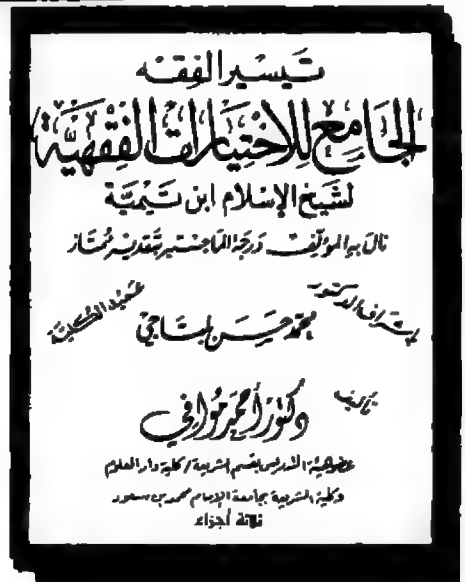 تيسير الفقه
الجامع للاختيارات الفقهية
لشيخ الإسلام ابن تيمية
نال به المؤلف درجة الماجستير بتقدير ممتاز
إشراف الدكتور
محمد حسن عميد الكلية
تأليف
دكتور أحمد موافي
عضو هيئة التدريس بقسم الشريعة / كلية دار العلوم
وكلية الشريعة بجامعة الإمام محمد بن سعود
ثلاثة أجزاء